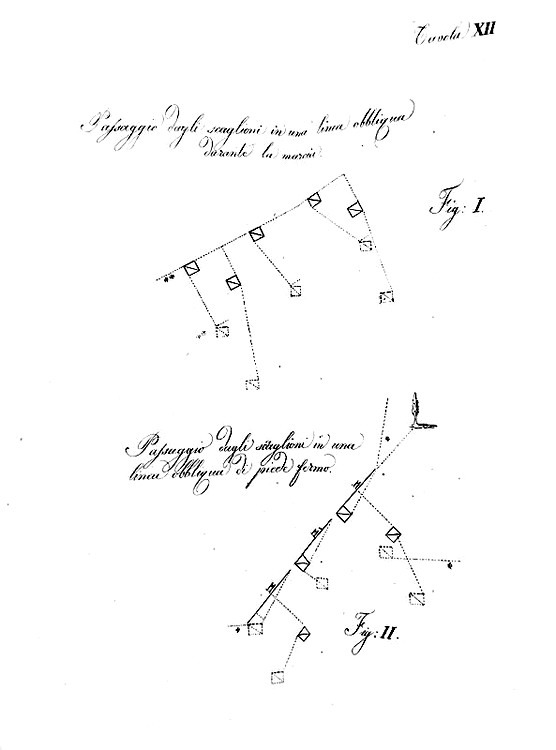 Tavola XII
Passaggio dagli scaglioni in una linea obbliqua
durante la marcia.
Fig: I.
Passaggio dagli scaglioni in una
linea obbliqua di piede fermo.
Fig: II.